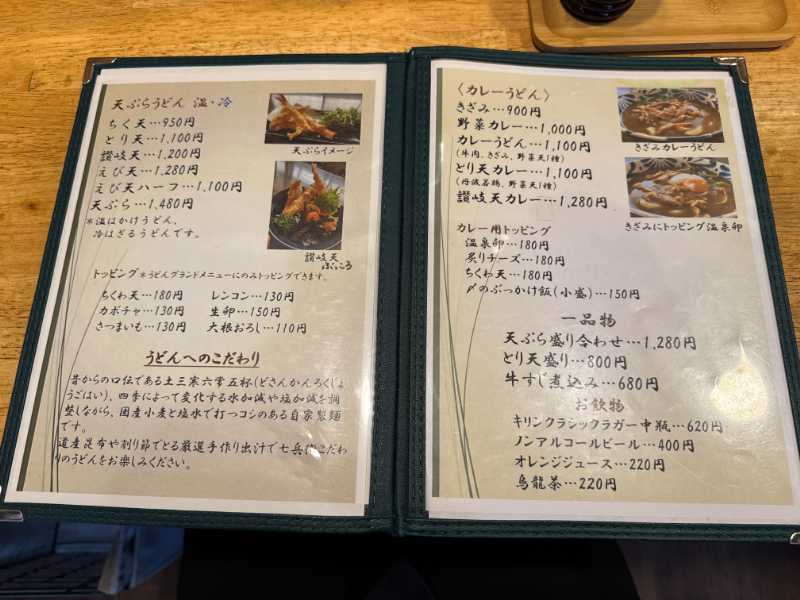 天ぷらうどん 温・冷
ちく天…950円
とり天…1,100円
讃岐天…1,200円
えび天…1,280円
えび天ハーフ…1,100円
天ぷら…1,480円
*温はかけうどん、
冷はざるうどんです。
天ぷらイメージ
讃岐天
ぶっころ
トッピング*うどんグランドメニューにのみトッピングできます。
ちくわ天…180円 レンコン…130円
カボチャ…130円 生卵…150円
さつまいも…130円 大根おろし…110円
うどんへのこだわり
昔からの口伝である土三寒六常五杯(どさんかんろくじょ
うごはい)、四季によって変化する水加減や塩加減を調
整しながら、国産小麦と塩水で打つコシのある自家製麺
です。
道産昆布や削り節でとる厳選手作り出汁で七兵衛こだわ
りのうどんをお楽しみください。
〈カレーうどん〉
きざみ…900円
野菜カレー…1,000円
カレーうどん…1,100円
(牛肉、きざみ、野菜天1種)
とり天カレー…1,100円
(丹波若鶏、野菜天1種)
讃岐天カレー…1,280円
きざみカレーうどん
きざみにトッピング温泉卵
カレー用トッピング
温泉卵…180円
炙りチーズ…180円
ちくわ天…180円
〆のぶっかけ飯(小盛)…150円
一品物
天ぷら盛り合わせ…1,280円
とり天盛り…800円
牛すじ煮込み…680円
お飲物
キリンクラシックラガー中瓶…620円
ノンアルコールビール…400円
オレンジジュース…220円
烏龍茶…220円